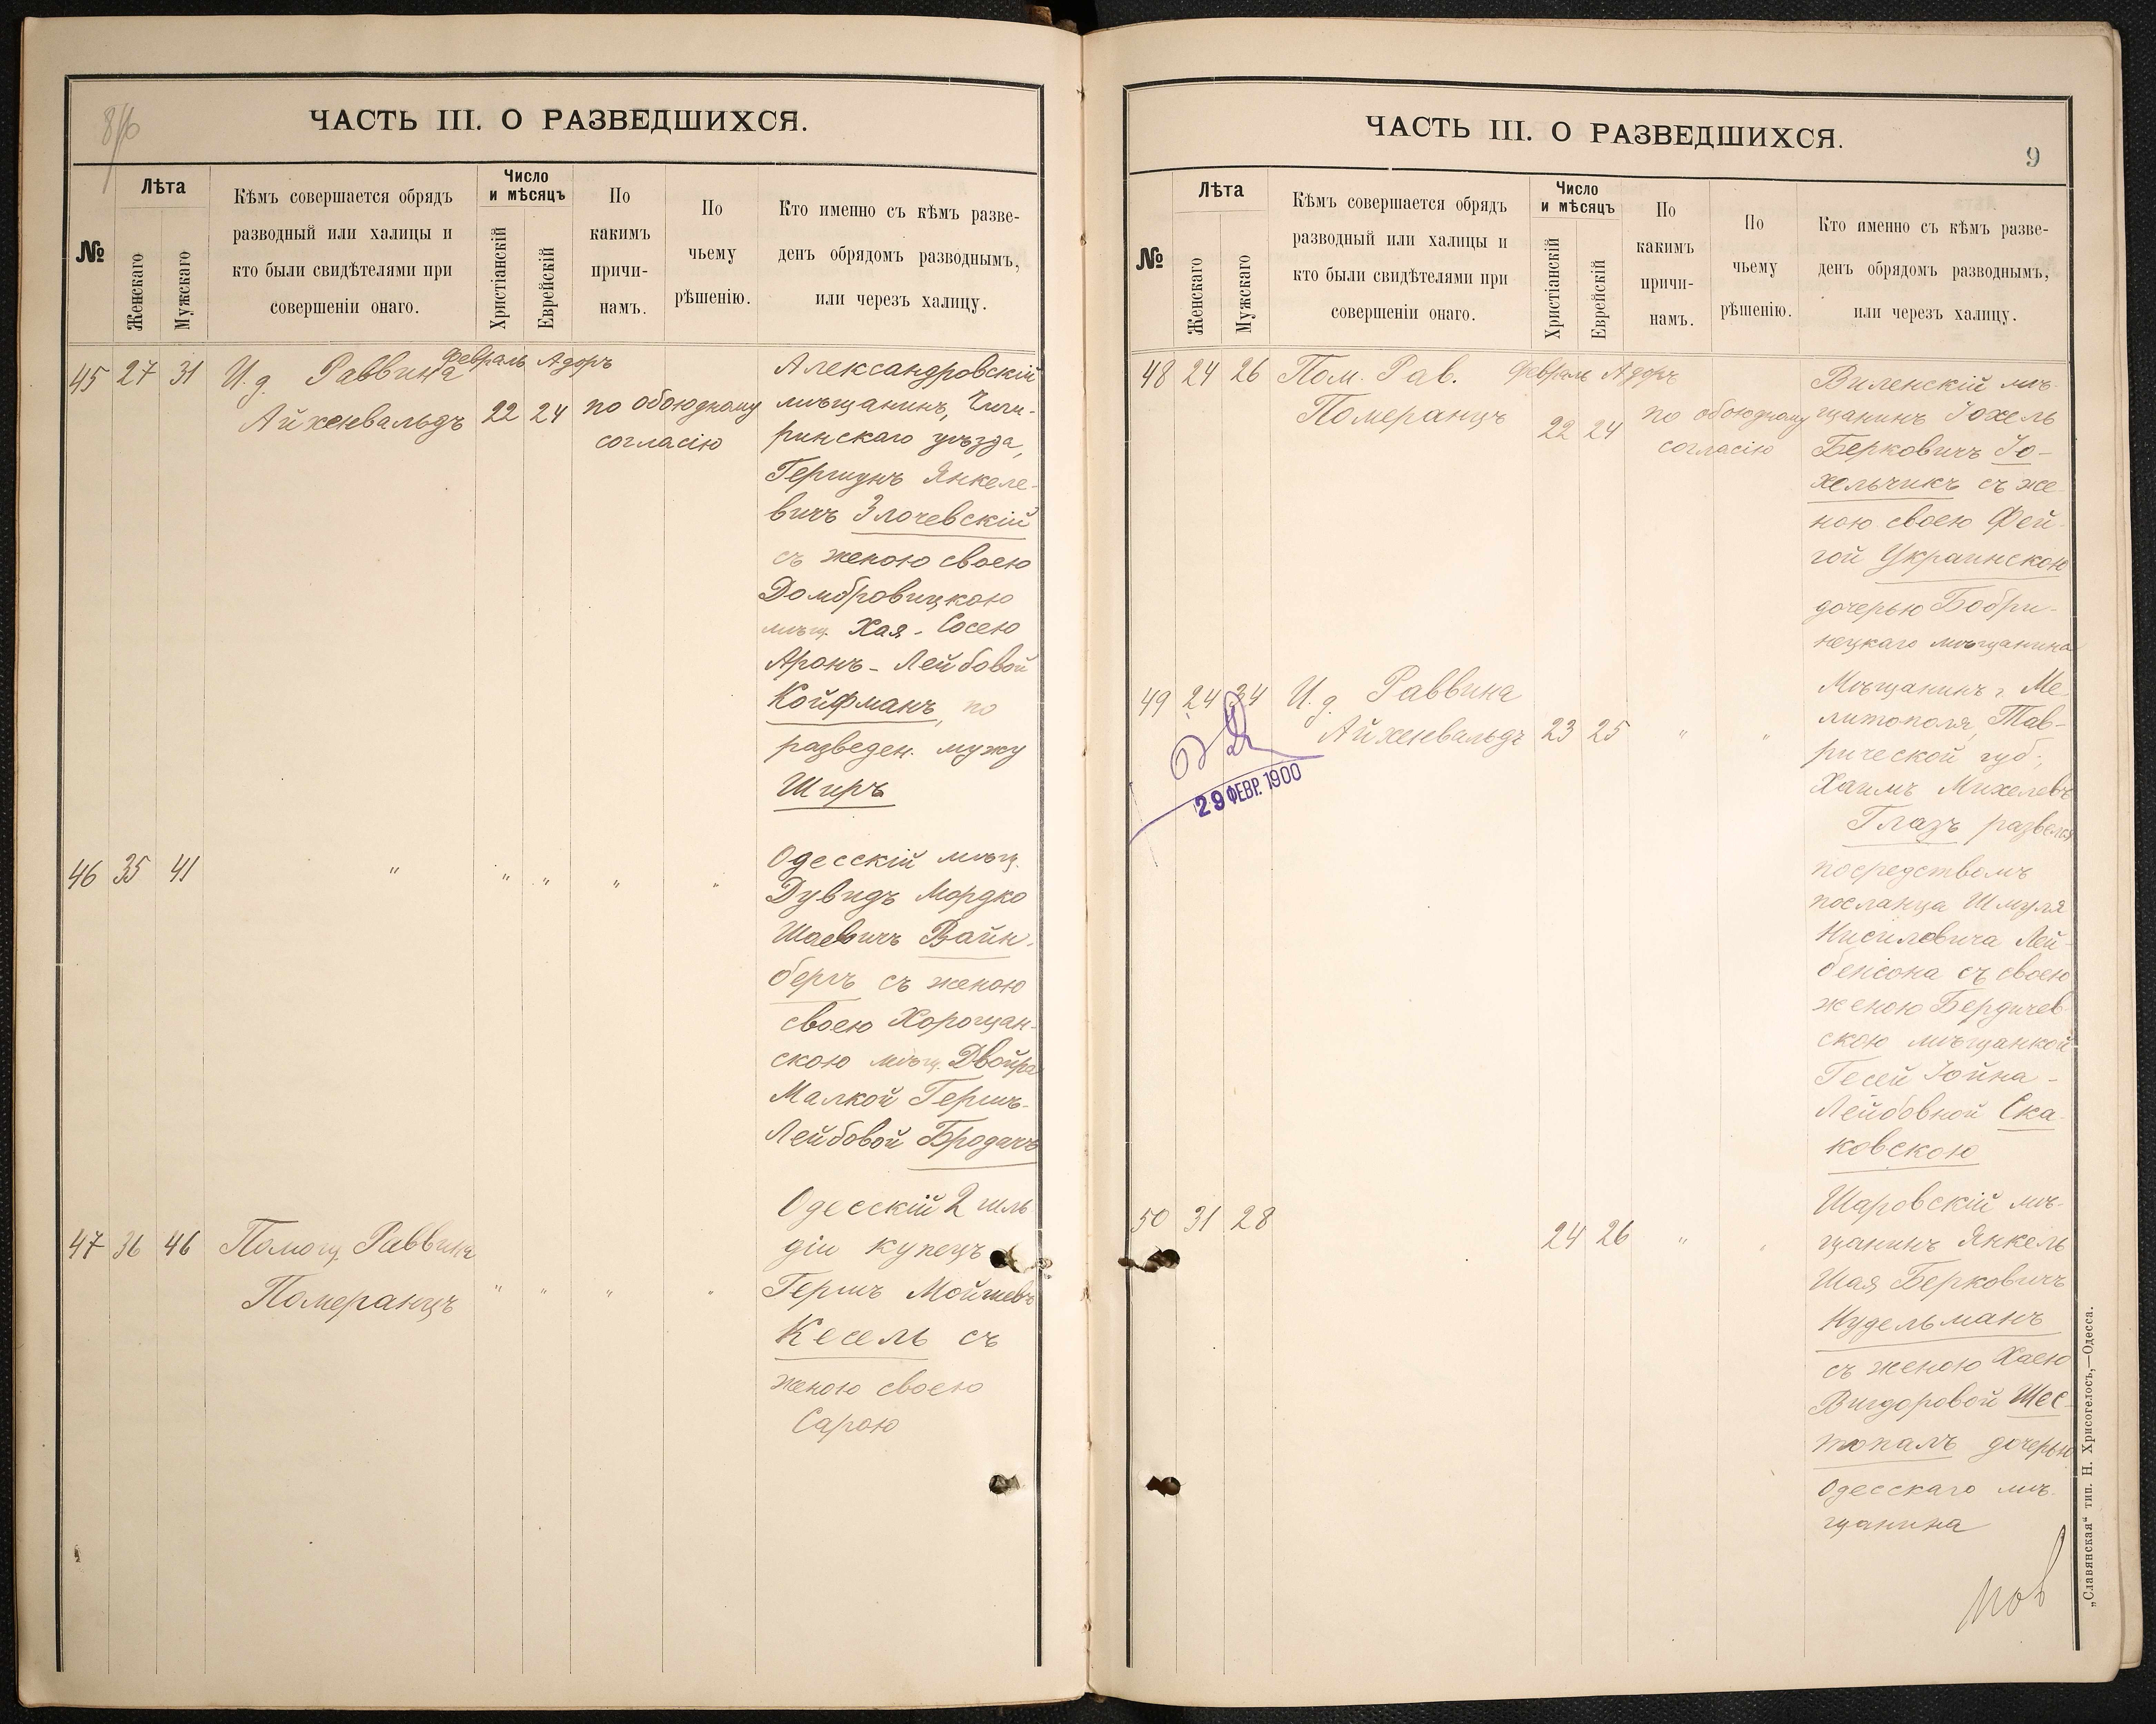 8/10
ЧАСТЬ III. О РАЗВЕДШИХСЯ.
№
Лѣта
Женскаго
Мужскаго
Кѣмъ совершается обрядъ
разводный или халицы и
кто были свидѣтелями при
совершеніи онаго.
Число
и мѣсяцъ
Христіанскій
Еврейскій
По
какимъ
причи-
намъ.
По
чьему
рѣшенію.
Кто именно съ кѣмъ разве-
денъ обрядомъ разводнымъ,
или черезъ халицу.
45 27 31 И. д. Раввина Февраль Адоръ
Айхенвальдъ 22 24 по обоюдному
согласію
Александровскій
мѣщанинъ, Чиги-
ринскаго уѣзда,
Гершунъ Янкеле-
вичъ Злочевскій
съ женою своею
Домбровицкою
мѣщ. Хая-Сосею
Аронъ-Лейбовой
Койфманъ, по
разведен. мужу
Ширъ
46 35 41 " " " " "
Одесскій мѣщ.
Дувидъ Мордко
Шаевичъ Вайн-
бергъ съ женою
своею Хорощан-
скою мѣщ. Двойра
Малкой Гершъ-
Лейбовой Бродачъ
47 36 46 Помощ. Раввина
Померанцъ " " " "
Одесскій 2 гиль
діи купецъ
Гершъ Мойшевъ
Кесель съ
женою своею
Сарою
ЧАСТЬ III. О РАЗВЕДШИХСЯ.
9
№
Лѣта
Женскаго
Мужскаго
Кѣмъ совершается обрядъ
разводный или халицы и
кто были свидѣтелями при
совершеніи онаго.
Число
и мѣсяцъ
Христіанскій
Еврейскій
По
какимъ
причи-
намъ.
По
чьему
рѣшенію.
Кто именно съ кѣмъ разве-
денъ обрядомъ разводнымъ,
или черезъ халицу.
48 24 26 Пом. Рав. Февраль Адоръ
Померанцъ 22 24 по обоюдному
согласію
Виленскій мѣ-
щанинъ Іохель
Берковичъ Іо-
хельчикъ съ же
ною своею Фей-
гой Украинскою
дочерью Бобри-
нецкаго мѣщанина
49 24 34 И. д. Раввина
Айхенвальдъ 23 25 " "
29 ФЕВР. 1900
Мѣщанинъ г. Ме-
литополя, Тав-
рической губ.,
Хаимъ Михелевъ
Глазъ развелся
посредствомъ
посланца Шмуля
Нисиловича Лей-
бенсона съ своею
женою Бердичев
скою мѣщанкой
Гесей Іойна-
Лейбовной Ска-
ковскою
50 31 28 24 26 " "
Шаровскій мѣ-
щанинъ Янкель
Шая Берковичъ
Нудельманъ
съ женою Хаею
Вигдоровой Шес-
топалъ дочерью
Одесскаго мѣ-
щанина
„Славянская“ тип. Н. Хрисогелосъ,—Одесса.